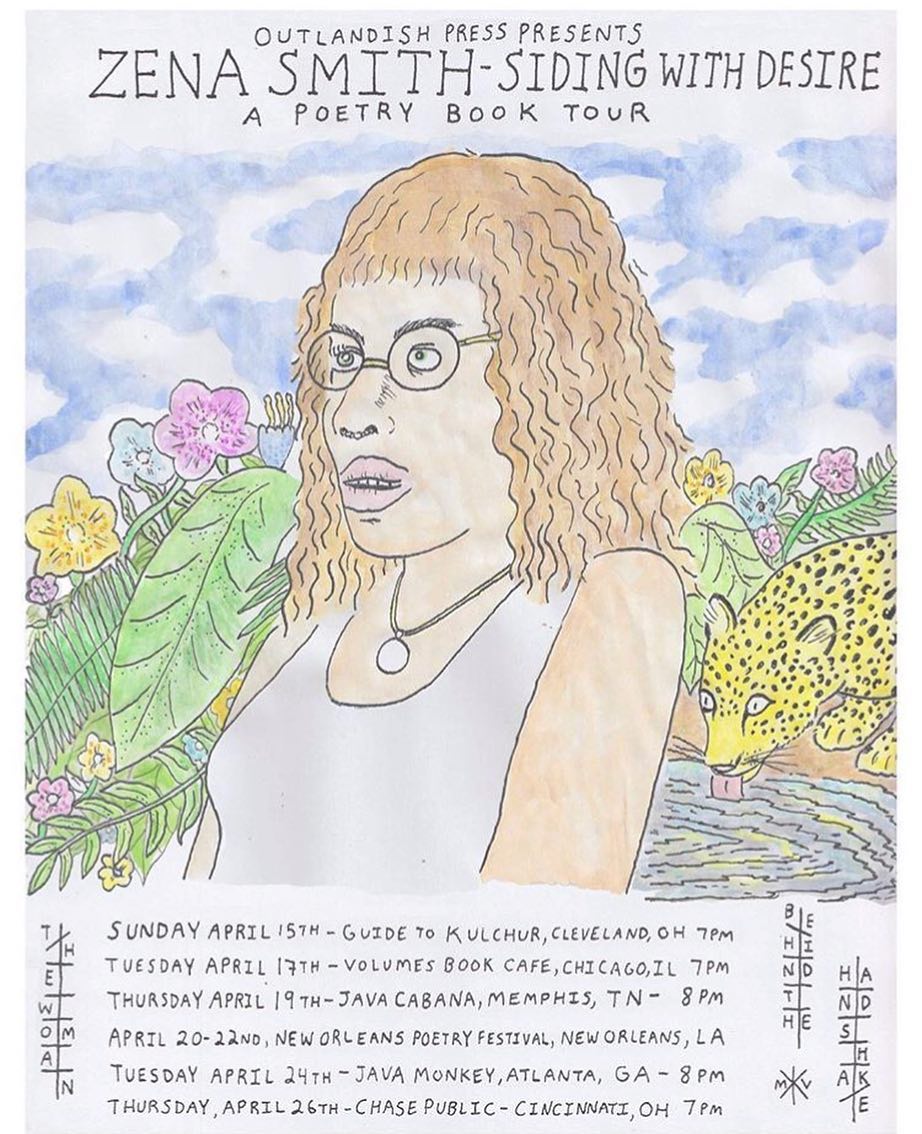 OUTLANDISH PRESS PRESENTS
ZENA SMITH-SIDING WITH DESIRE
A POETRY BOOK TOUR
SUNDAY APRIL 15TH - GUIDE TO KULCHUR, CLEVELAND, OH 7PM
TUESDAY APRIL 17TH - VOLUMES BOOK CAFE, CHICAGO, IL 7PM
THURSDAY APRIL 19TH - JAVA CABANA, MEMPHIS, TN - 8PM
APRIL 20-22ND, NEW ORLEANS POETRY FESTIVAL, NEW ORLEANS, LA
TUESDAY APRIL 24TH - JAVA MONKEY, ATLANTA, GA - 8PM
THURSDAY, APRIL 26TH - CHASE PUBLIC - CINCINNATI, OH 7PM
THE WOMAN
BEHIND THE
HANDSHAKE